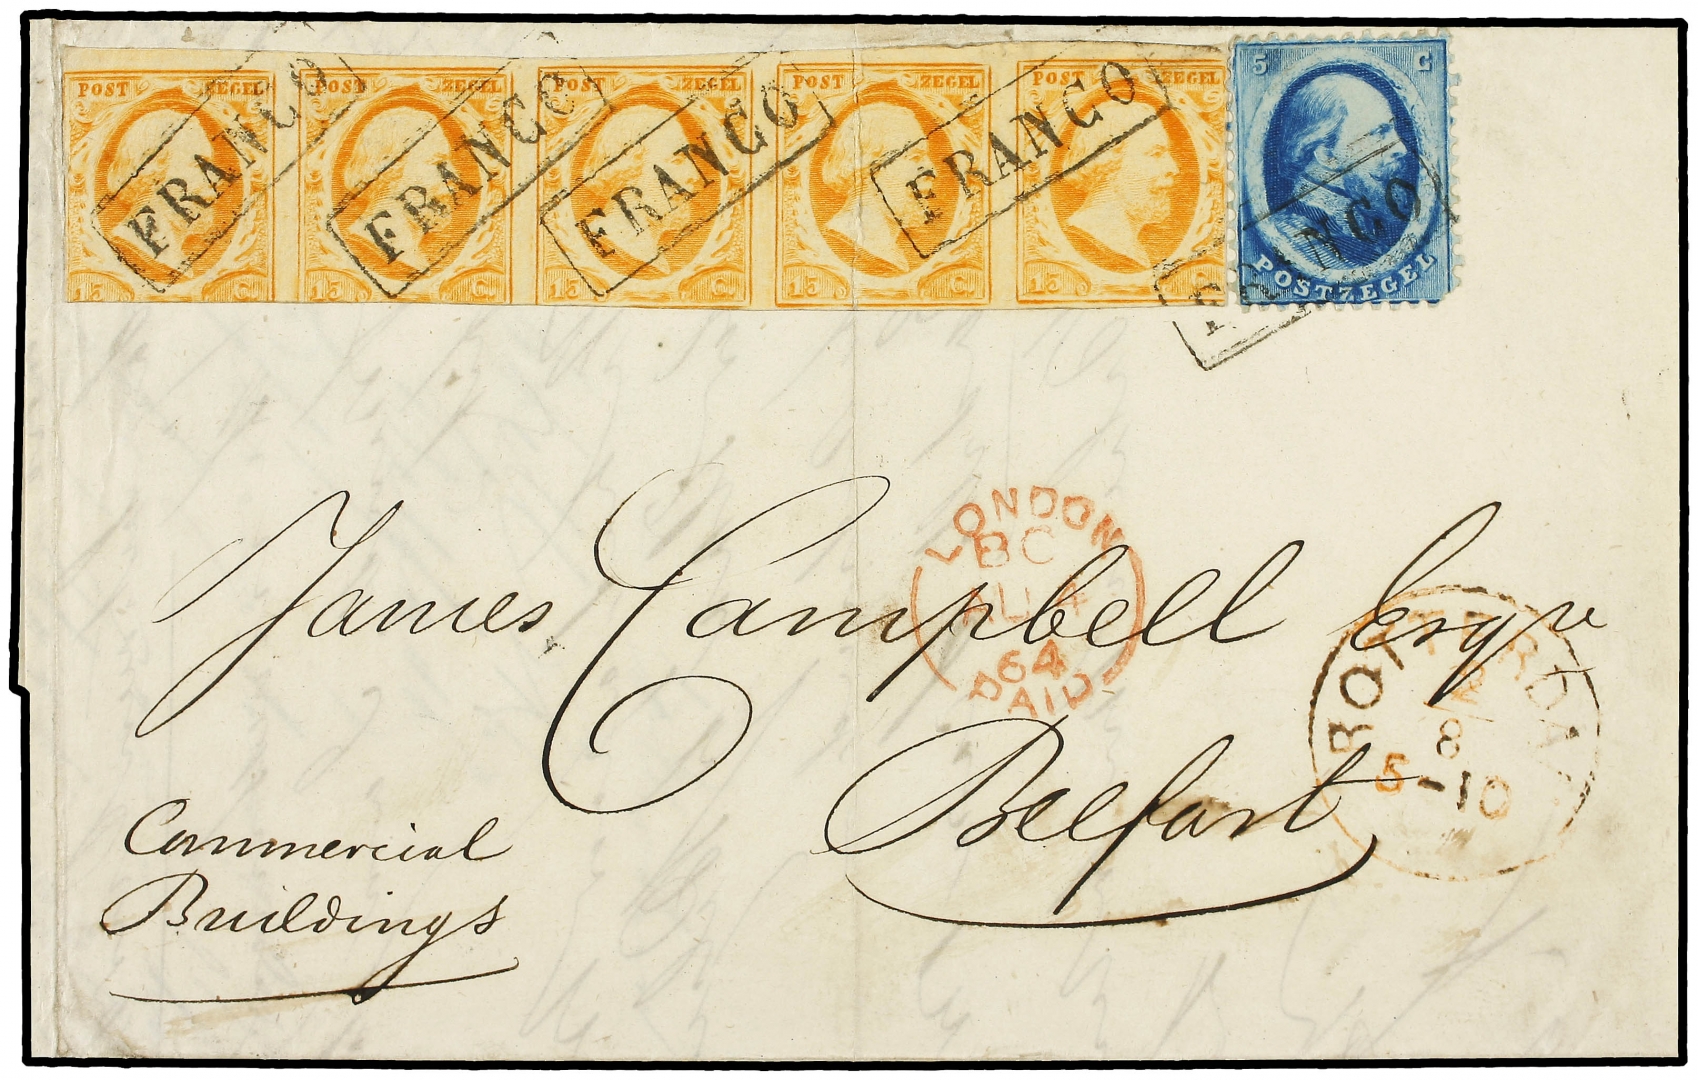 POST ZEGEL POST ZEGEL POST ZEGEL POST ZEGEL POST ZEGEL 5 C
FRANCO FRANCO FRANCO FRANCO FRANCO
15 C. 15 C. 15 C. 15 C. 15 C. POSTZEGEL
LONDON
BC
AU 4
64
PAID
James Campbell Esqre
Belfast
ROTTERDAM
2/
8
5-10
Commercial
Buildings